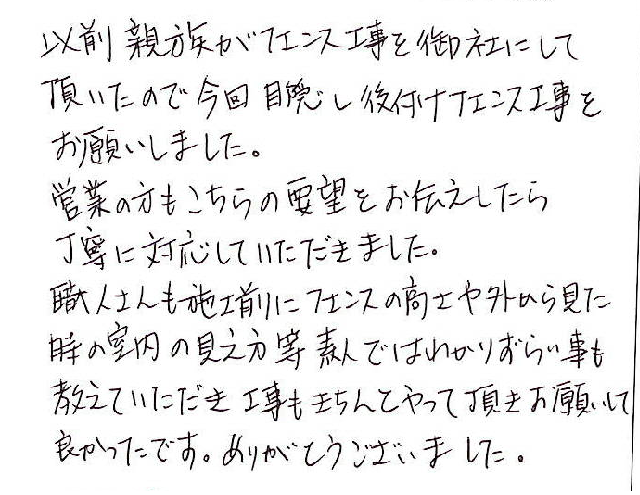 以前親族がフェンス工事を御社にして
頂いたので今回目隠し後付けフェンス工事を
お願いしました。
営業の方もこちらの要望をお伝えしたら
丁寧に対応していただきました。
職人さんも施工前にフェンスの高さや外から見た
時の室内の見え方等素人ではわかりずらい事も
教えていただき工事もきちんとやって頂きお願いして
良かったです。ありがとうございました。